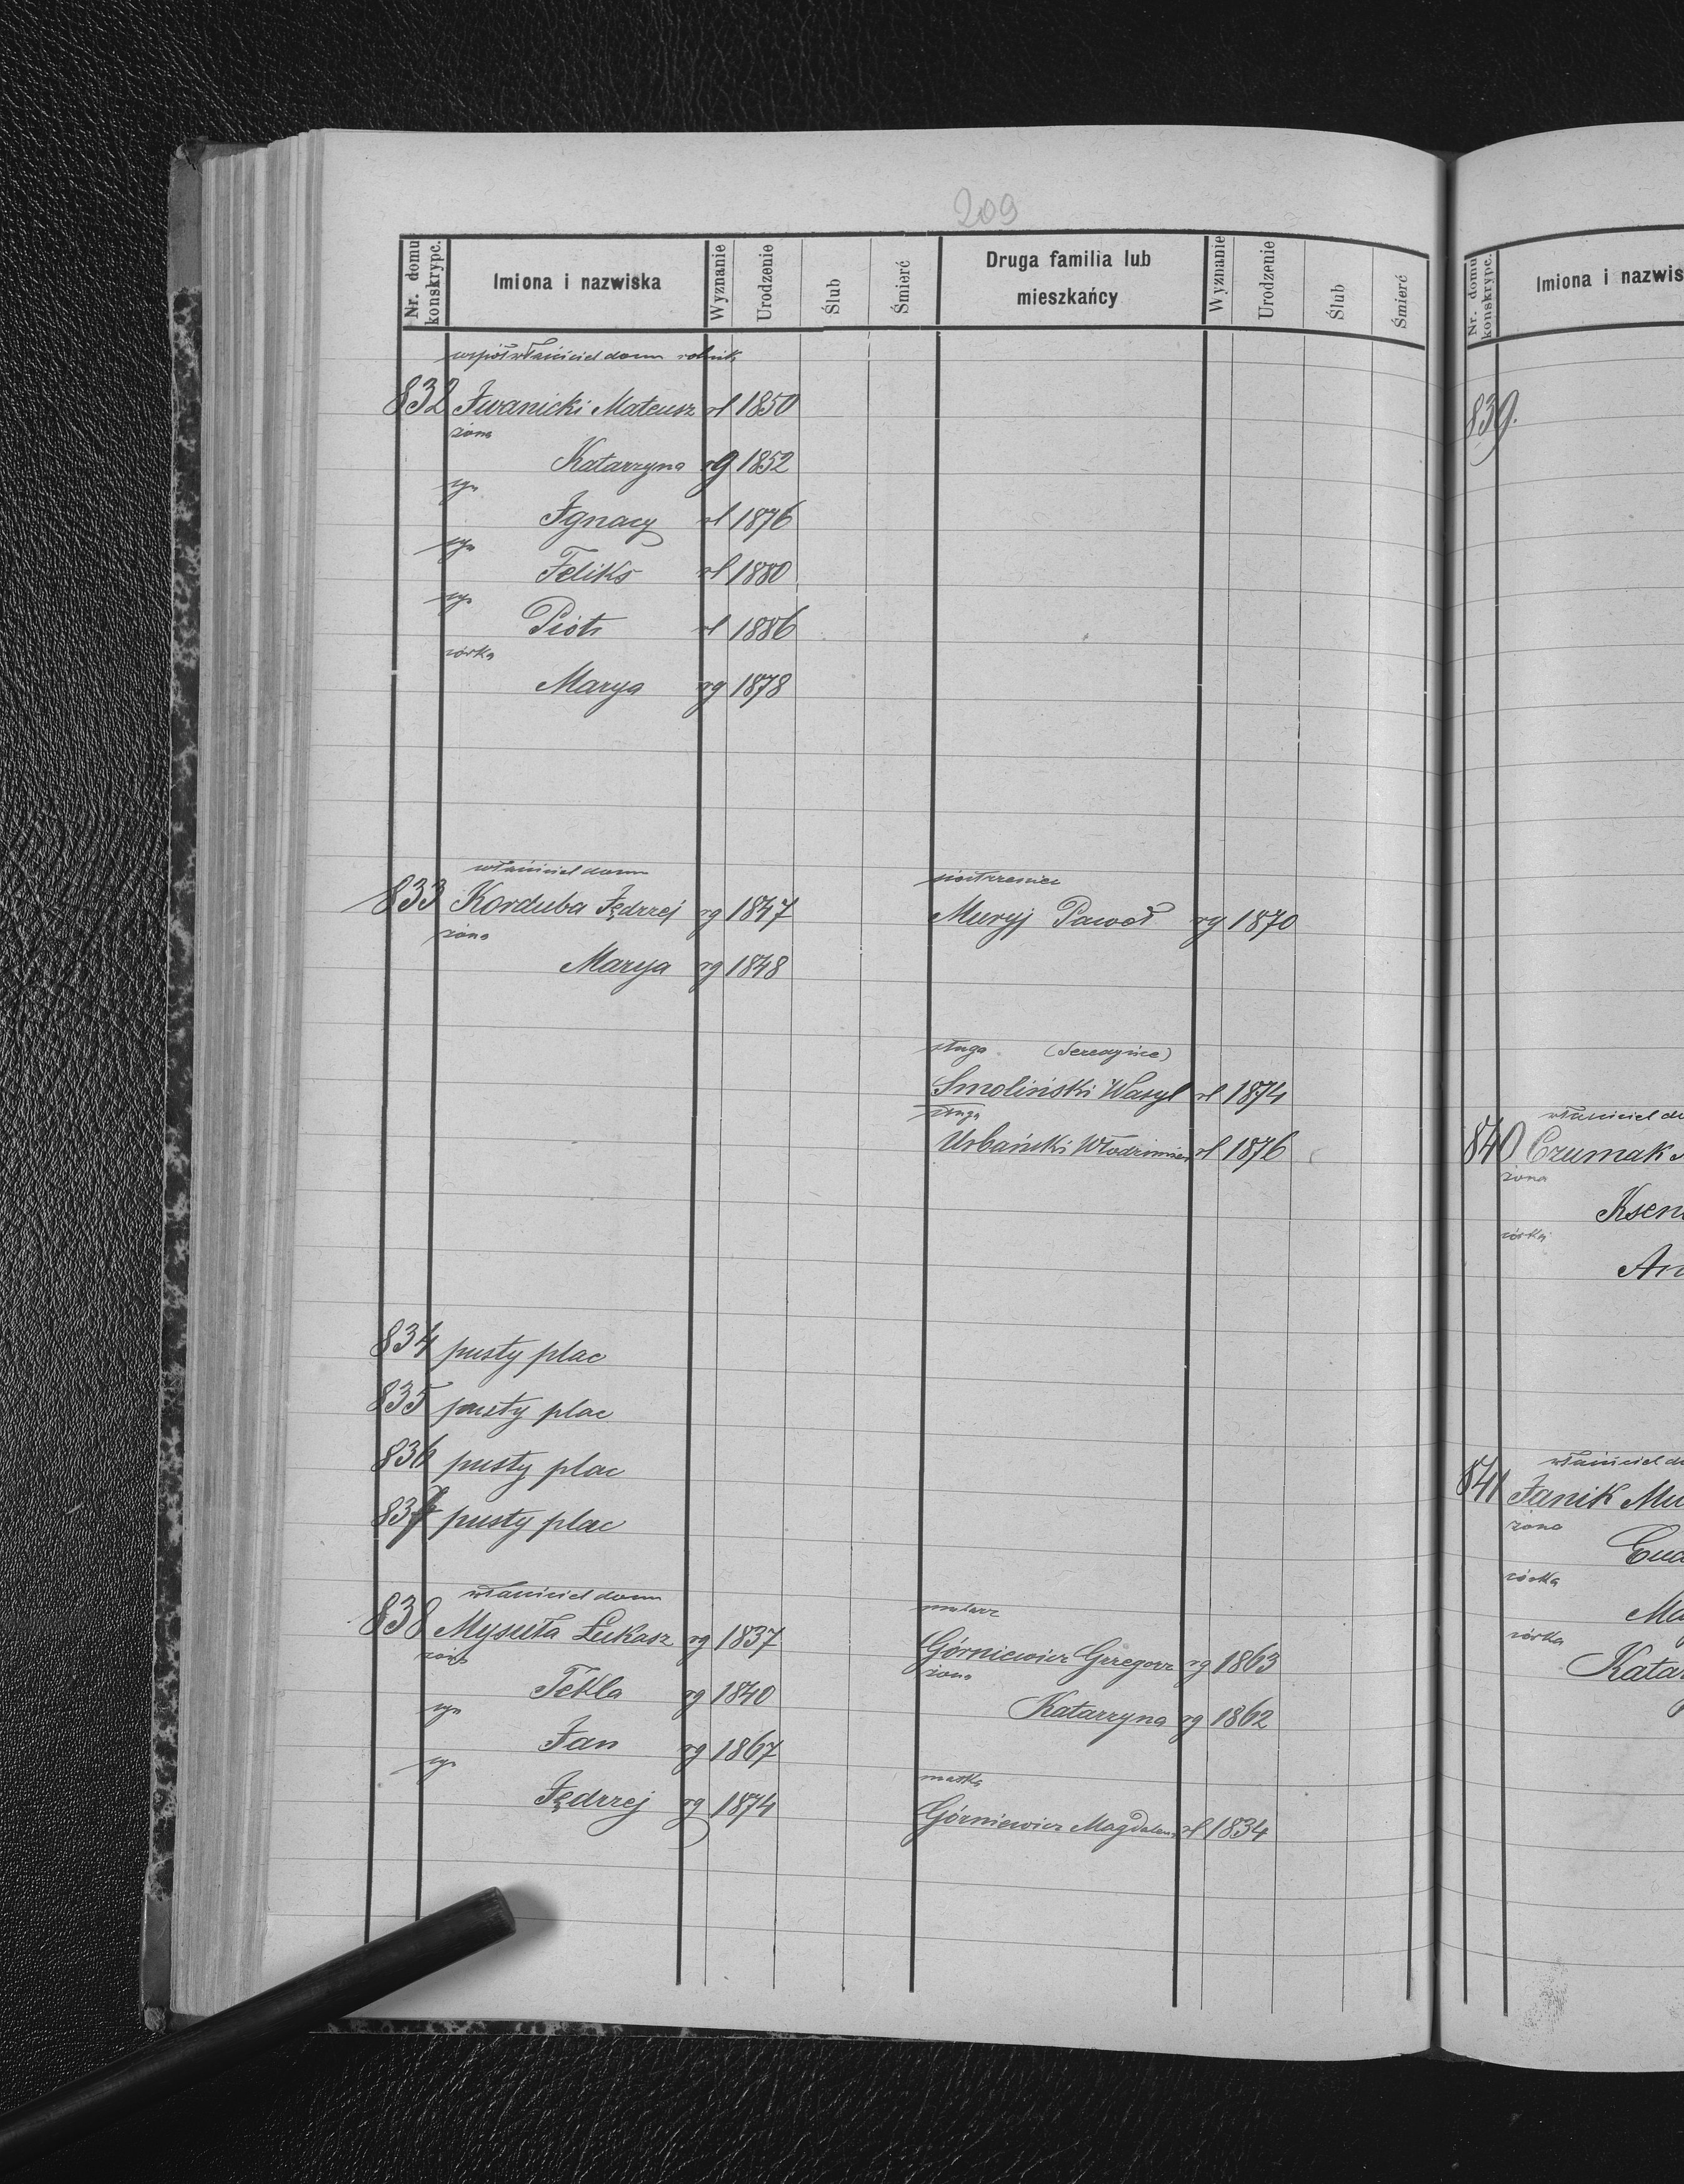 209
Nr. domu konskrypc. Imiona i nazwiska Wyznanie Urodzenie Ślub Śmierć Druga familia lub mieszkańcy Wyznanie Urodzenie Ślub Śmierć
współwłaściciel domu rolnik
832 Iwanicki Mateusz rł 1850
żona
Katarzyna rg 1852
syn
Ignacy rł 1876
syn
Feliks rł 1880
syn
Piotr rł 1886
córka
Marya rg 1878
właściciel domu
833 Korduba Jędrzej rg 1847
żona
Marya rg 1848
siostrzeniec
Muryj Paweł rg 1870
sługa (Seredyńce)
Smoliński Wasyl rł 1874
sługa
Urbański Włodzimierz rł 1876
834 pusty plac
835 pusty plac
836 pusty plac
837 pusty plac
właściciel domu
838 Mysuła Łukasz rg 1837
żona
Tekla rg 1840
syn
Jan rg 1867
syn
Jędrzej rg 1874
Górniewicz Grzegorz rg 1863
żona
Katarzyna rg 1862
matka
Górniewicz Magdalena rł 1834
Nr. domu konskrypc. Imiona i nazwis
839.
właściciel do
840 Czumak
żona
Kseni
córka
An
właściciel do
841 Janik Mi
żona
Eud
córka
Ma
córka
Katar